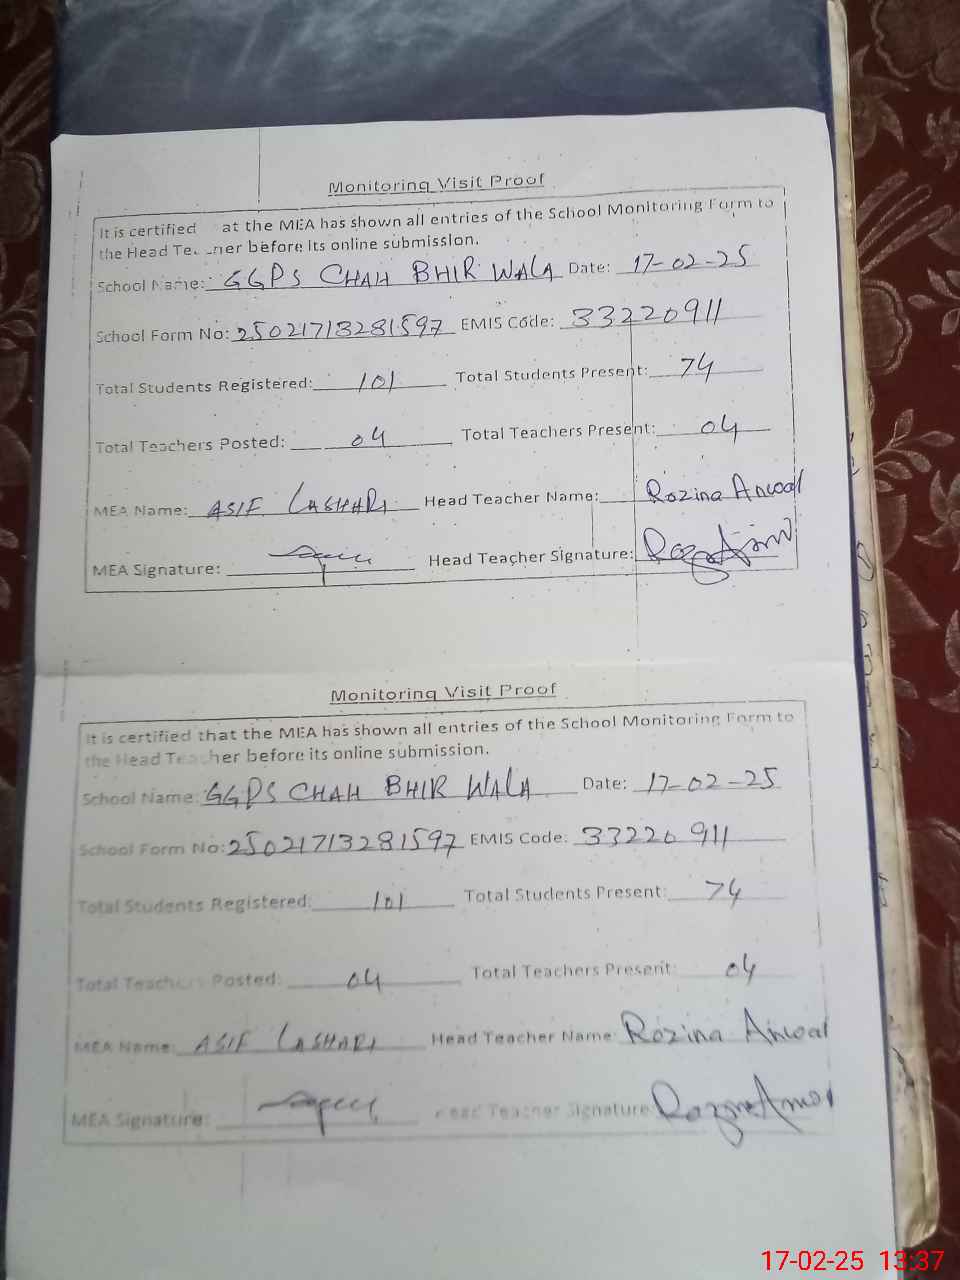 Monitoring Visit Proof
It is certified at the MEA has shown all entries of the School Monitoring Form to
the Head Te. .ner before its online submission.
School Name: GGPS CHAH BHIR WALA Date: 17-02-25
School Form No: 25021713281597 EMIS Code: 33220911
Total Students Registered: 101 Total Students Present: 74
Total Teachers Posted: 04 Total Teachers Present: 04
MEA Name: ASIF LASHARI Head Teacher Name: Rozina Anwar
MEA Signature: Head Teacher Signature:
Monitoring Visit Proof
It is certified that the MEA has shown all entries of the School Monitoring Form to
the Head Teacher before its online submission.
School Name: GGPS CHAH BHIR WALA Date: 17-02-25
School Form No: 25021713281597 EMIS Code: 33220911
Total Students Registered: 101 Total Students Present: 74
Total Teachers Posted: 04 Total Teachers Present: 04
MEA Name: ASIF LASHARI Head Teacher Name: Rozina Anwar
MEA Signature: Head Teacher Signature:
17-02-25 13:37